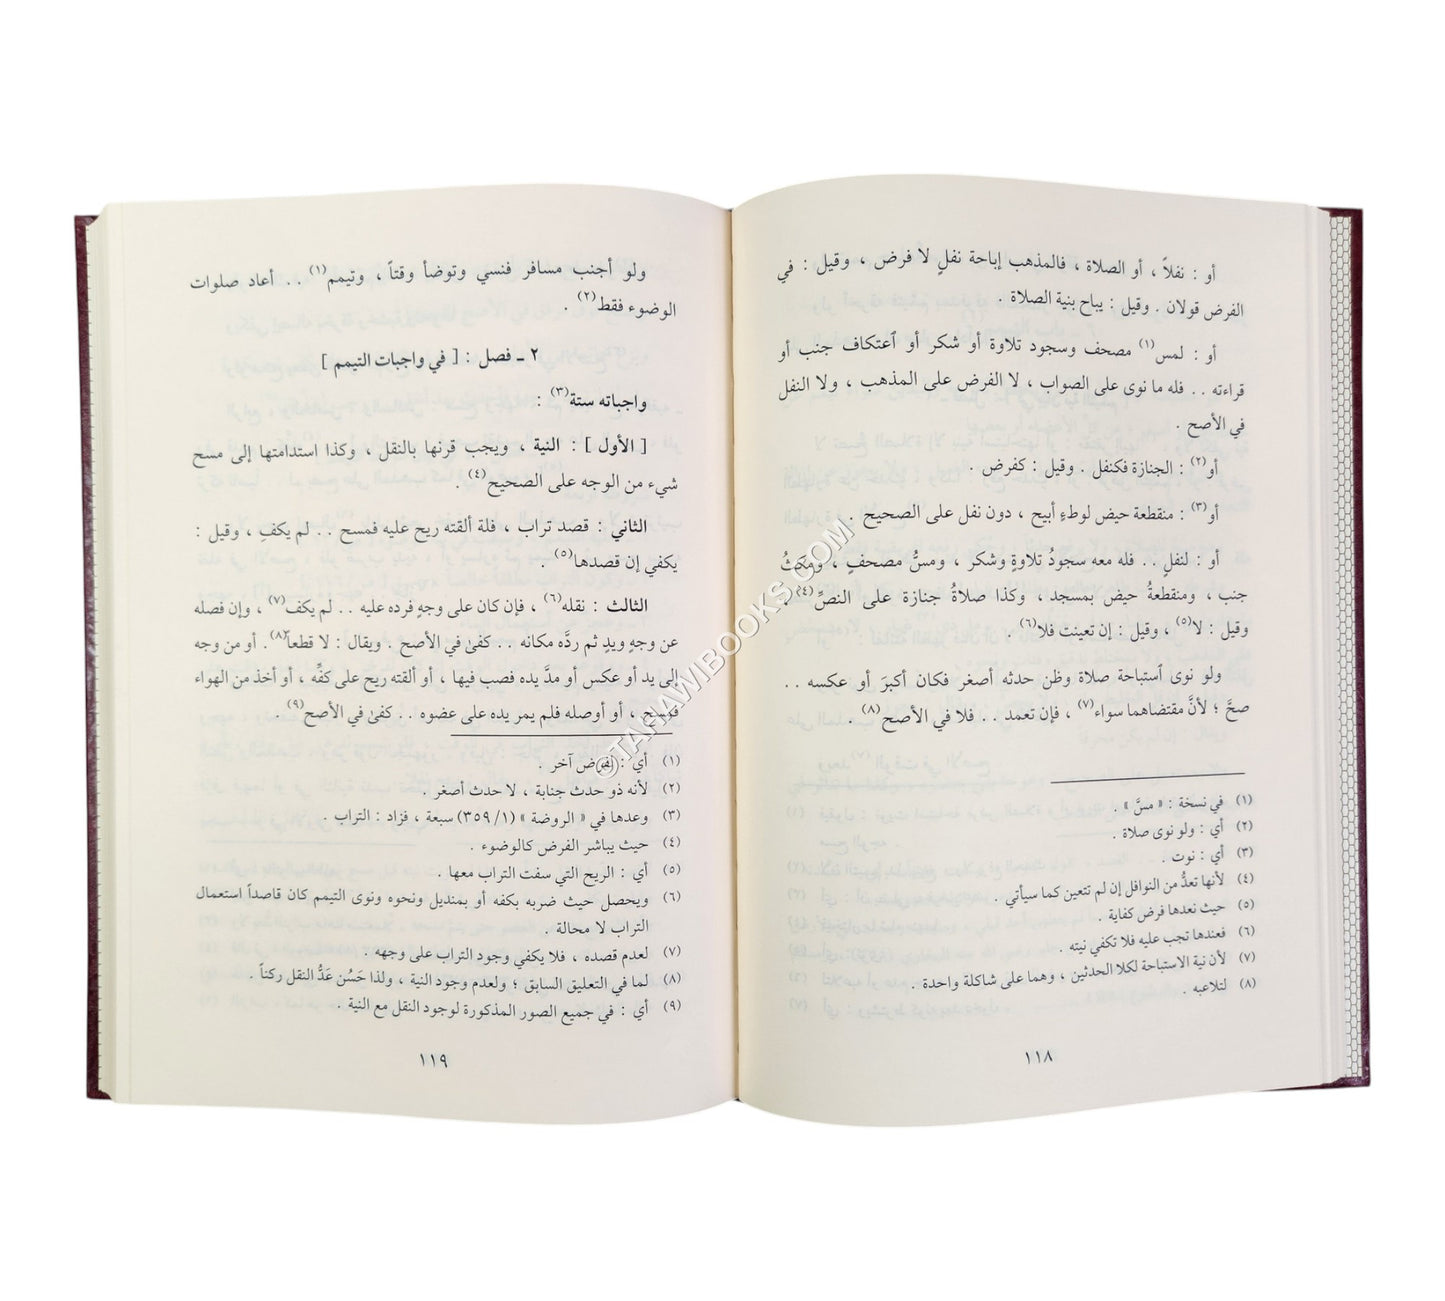 أو : نفلاً ، أو الصلاة ، فالمذهب إباحة نفلٍ لا فرض ، وقيل : في
الفرض قولان . وقيل : يباح بنية الصلاة .
أو : لمس(١) مصحف وسجود تلاوة أو شكر أو ٱعتكاف جنب أو
قراءته . . فله ما نوى على الصواب ، لا الفرض على المذهب ، ولا النفل
في الأصح .
أو(٢) : الجنازة فكنفل . وقيل : كفرض .
أو(٣) : منقطعة حيض لوطءٍ أبيح ، دون نفل على الصحيح .
أو : لنفلٍ . . فله معه سجودُ تلاوةٍ وشكر ، ومسُّ مصحفٍ ، ومكثُ
جنب ، ومنقطعةُ حيض بمسجد ، وكذا صلاةُ جنازة على النصِّ(٤) ،
وقيل : لا(٥) ، وقيل : إن تعينت فلا(٦) .
ولو نوى ٱستباحة صلاة وظن حدثه أصغر فكان أكبرَ أو عكسه . .
صحَّ ؛ لأنَّ مقتضاهما سواء(٧) ، فإن تعمد . . فلا في الأصح(٨) .
(١) في نسخة : « مسَّ » .
(٢) أي : ولو نوى صلاة .
(٣) أي : نوت .
(٤) لأنها تعدُّ من النوافل إن لم تتعين كما سيأتي .
(٥) حيث نعدها فرض كفاية .
(٦) فعندها تجب عليه فلا تكفي نيته .
(٧) لأن نية الاستباحة لكلا الحدثين ، وهما على شاكلة واحدة .
(٨) لتلاعبه .
١١٨
ولو أجنب مسافر فنسي وتوضأ وقتاً ، وتيمم(١) . . أعاد صلوات
الوضوء فقط(٢) .
٢ ـ فصل : [ في واجبات التيمم ]
واجباته ستة(٣) :
[ الأول ] : النية ، ويجب قرنها بالنقل ، وكذا استدامتها إلى مسح
شيء من الوجه على الصحيح(٤) .
الثاني : قصد تراب ، فلة ألقته ريح عليه فمسح . . لم يكفِ ، وقيل :
يكفي إن قصدها(٥) .
الثالث : نقله(٦) ، فإن كان على وجهٍ فرده عليه . . لم يكف(٧) ، وإن فصله
عن وجهٍ ويدٍ ثم ردَّه مكانه . . كفىٰ في الأصح . ويقال : لا قطعاً(٨) . أو من وجه
إلى يد أو عكس أو مدَّ يده فصب فيها ، أو ألقته ريح على كفِّه ، أو أخذ من الهواء
فمسح ، أو أوصله فلم يمر يده على عضوه . . كفىٰ في الأصح(٩) .
(١) أي : لفرض آخر .
(٢) لأنه ذو حدث جنابة ، لا حدث أصغر .
(٣) وعدها في « الروضة » (١/ ٣٥٩) سبعة ، فزاد : التراب .
(٤) حيث يباشر الفرض كالوضوء .
(٥) أي : الريح التي سفت التراب معها .
(٦) ويحصل حيث ضربه بكفه أو بمنديل ونحوه ونوى التيمم كان قاصداً استعمال
التراب لا محالة .
(٧) لعدم قصده ، فلا يكفي وجود التراب على وجهه .
(٨) لما في التعليق السابق ؛ ولعدم وجود النية ، ولذا حَسُن عَدُّ النقل ركناً .
(٩) أي : في جميع الصور المذكورة لوجود النقل مع النية .
١١٩
©TAHAWIBOOKS.COM